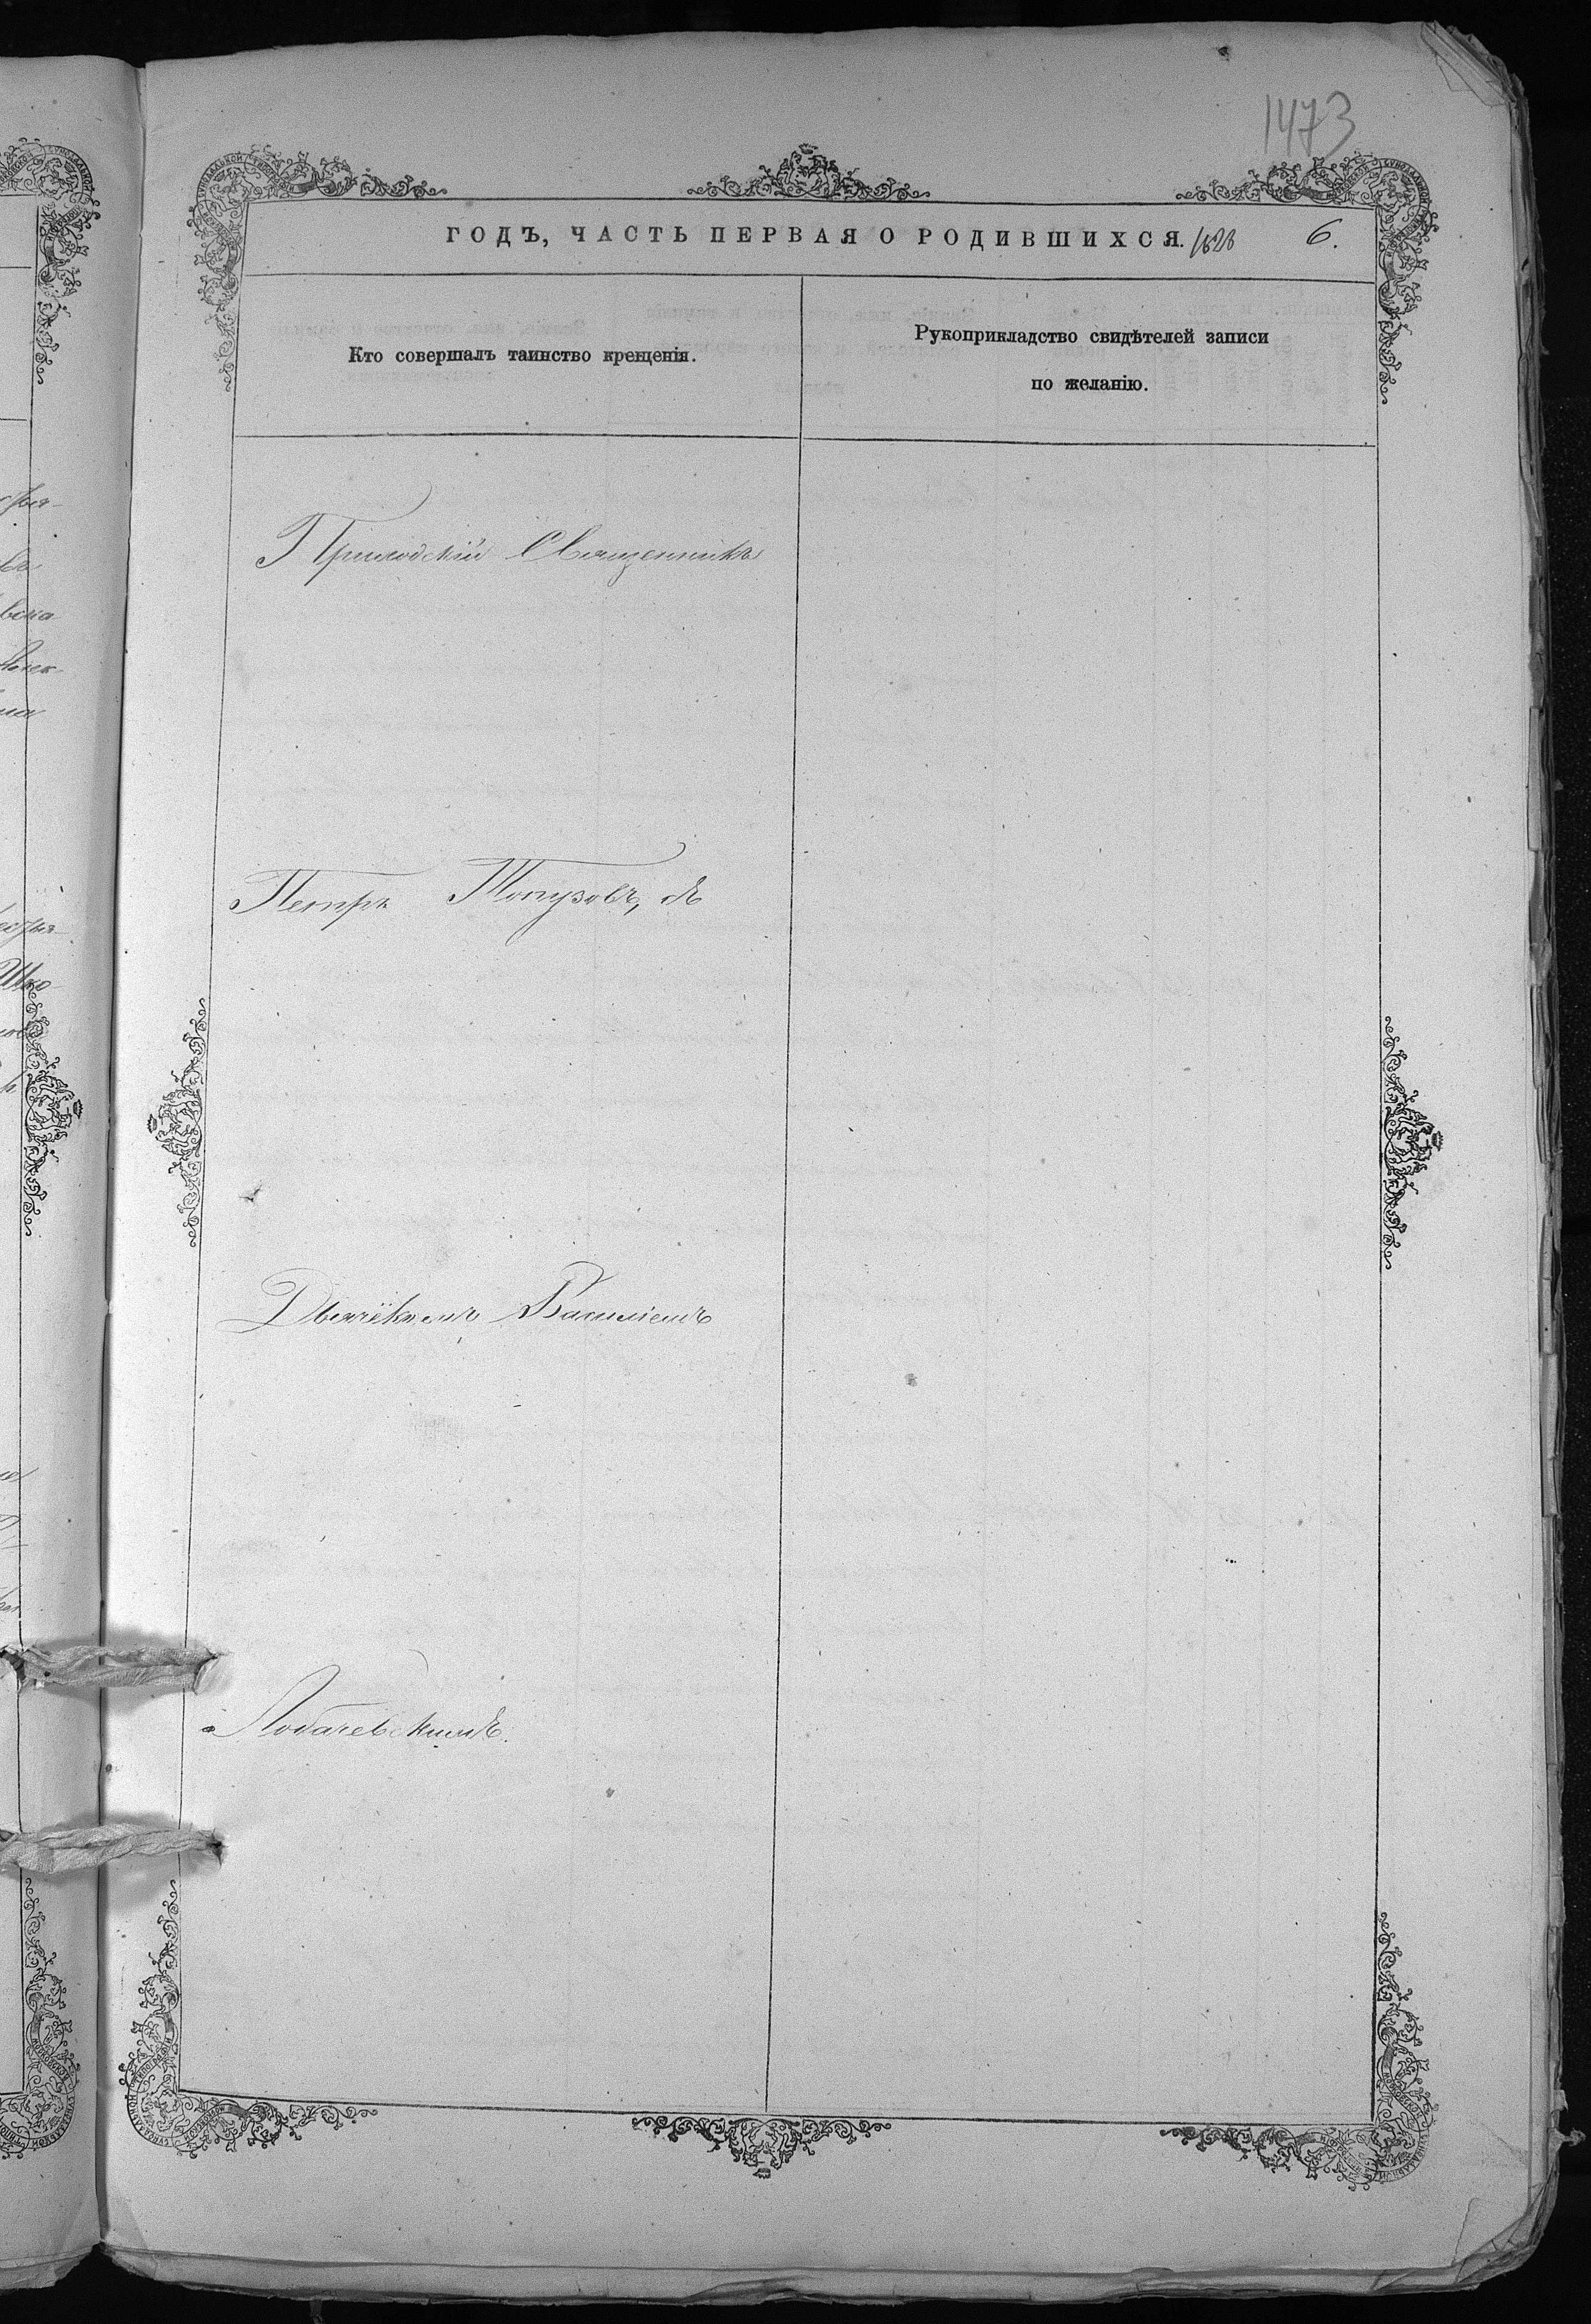 1473
ГОДЪ, ЧАСТЬ ПЕРВАЯ О РОДИВШИХСЯ. 1628 6.
Кто совершалъ таинство крещенія.
Рукоприкладство свидѣтелей записи
по желанію.
Приходскій Священникъ
Петръ Топузовъ, съ
Дьячёкомъ Василіемъ
Лобачевскимъ.